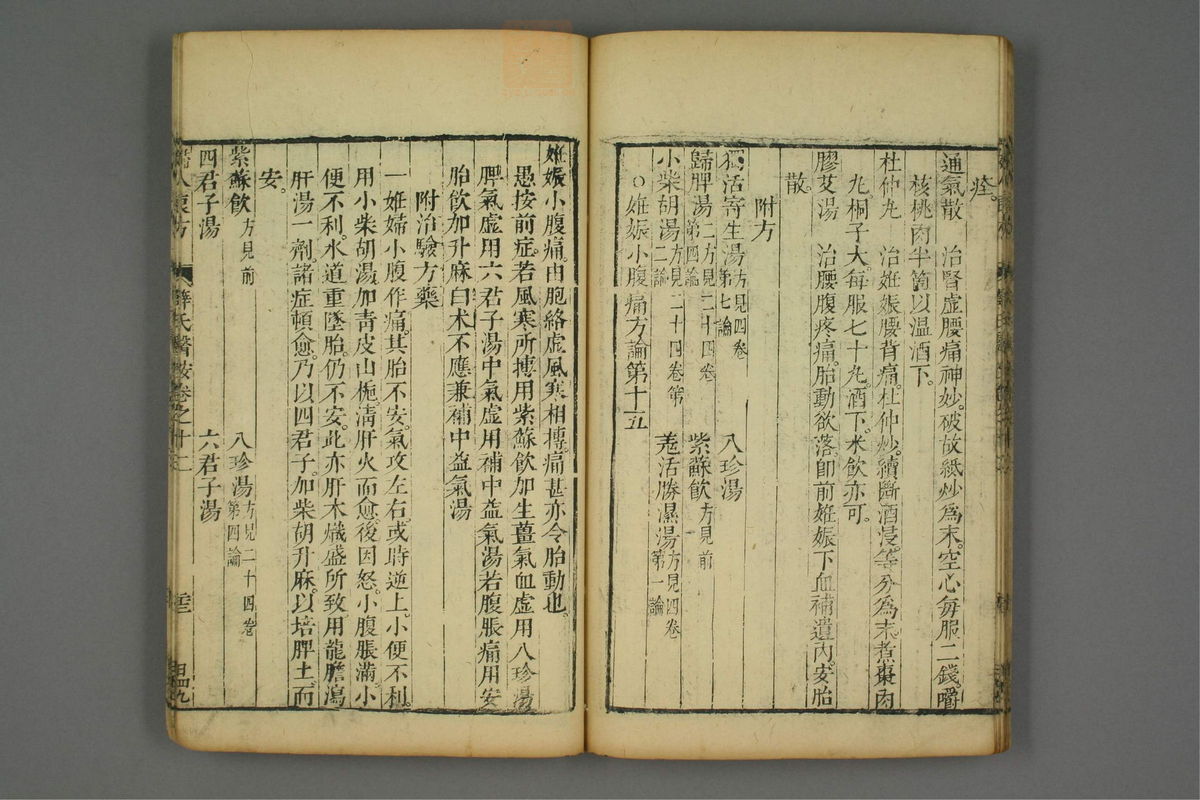 痊。
通氣散　治腎虛腰痛神妙。破故紙炒爲末。空心每服二錢。嚼
核桃肉半箇以温酒下。
杜仲丸　治姙娠腰背痛。杜仲炒。續斷酒浸。等分爲末。煮棗肉
丸桐子大。每服七十丸。酒下。米飲亦可。
膠艾湯　治腰腹疼痛。胎動欲落。卽前姙娠下血補遺內。安胎
散。
附方
獨活寄生湯方見四卷第七論　八珍湯
歸脾湯二方見二十四卷第四論　紫蘇飲方見前
小柴胡湯方見二十四卷第二論　羗活勝濕湯方見四卷第一論
○姙娠小腹痛方論第十五
姙娠小腹痛。由胞絡虛風寒相搏。痛甚亦令胎動也。
愚按前症。若風寒所搏用紫蘇飲加生薑氣血虛用八珍湯
脾氣虛用六君子湯中氣虛用補中益氣湯若腹脹痛用安
胎飲加升麻白术不應兼補中益氣湯
附治驗方藥
一姙婦小腹作痛。其胎不安。氣攻左右。或時逆上。小便不利。
用小柴胡湯。加靑皮山梔淸肝火而愈。後因怒。小腹脹滿小
便不利。水道重墜。胎仍不安。此亦肝木熾盛所致用龍膽瀉
肝湯一劑。諸症頓愈。乃以四君子。加柴胡升麻。以培脾土。而
安。
紫蘇飲方見前　八珍湯方見二十四卷第四論
四君子湯　六君子湯
婦人良方　薛氏醫按卷之十二